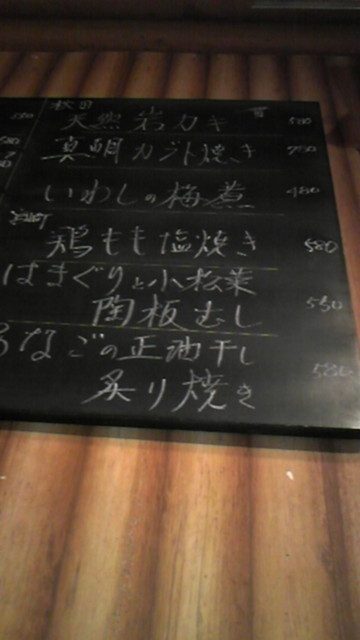 秋田
天然岩カキ 一百 580
真鯛カブト焼き 780
いわしの梅煮 480
鶏もも塩焼き 580
はまぐりと小松菜
陶板むし 530
あなごの正油干し
炙り焼き 580